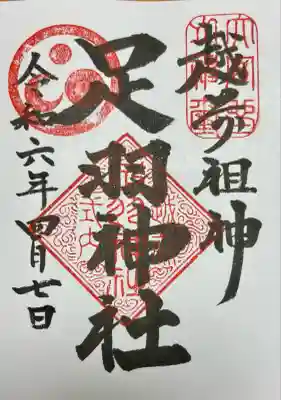 越前祖神
足羽神社
令和六年四月七日